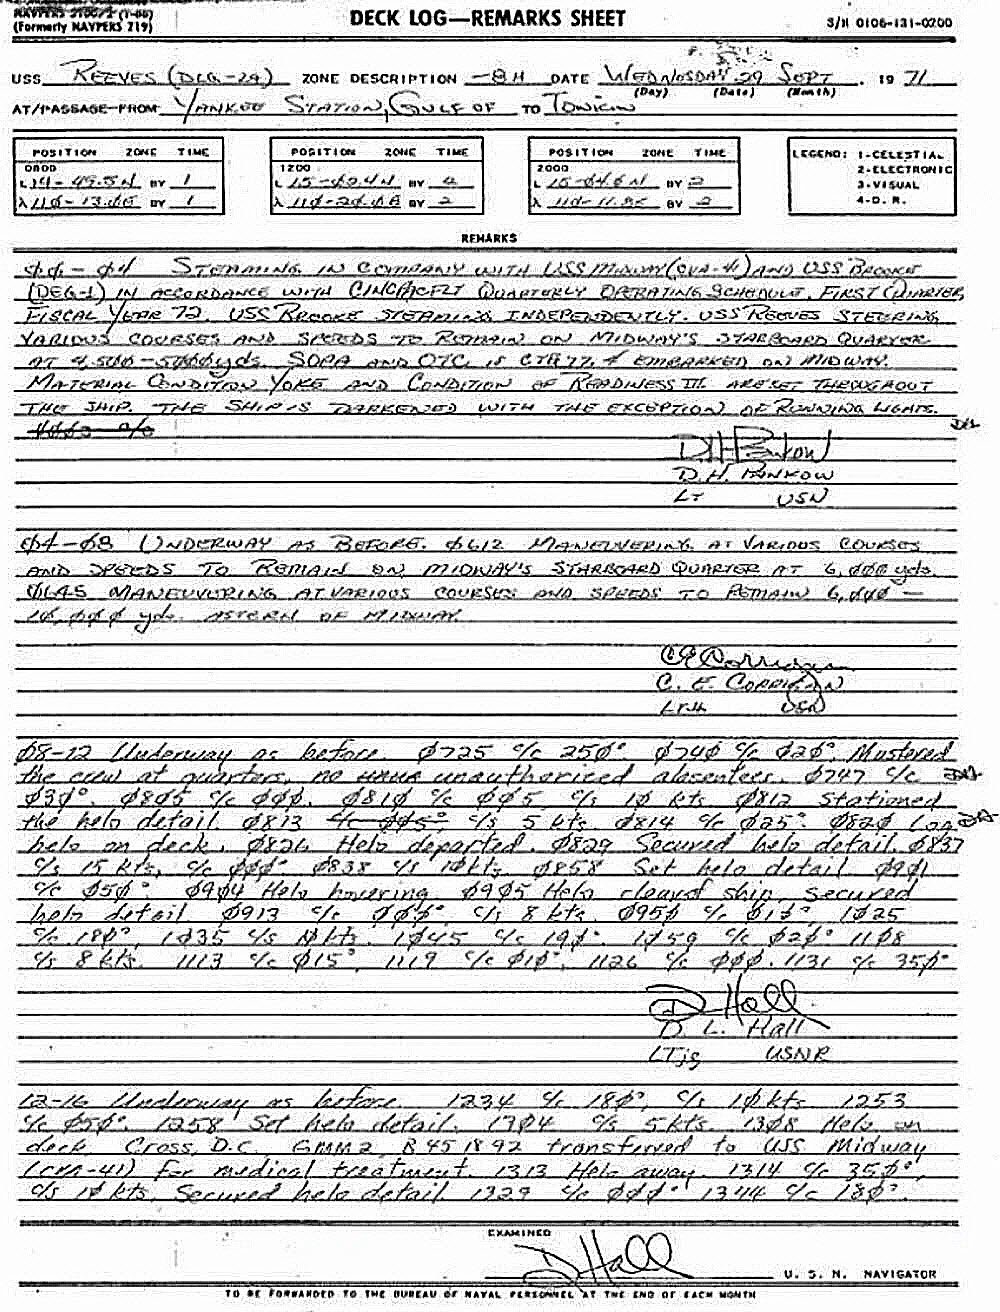 NAVPERS 3100/2 (7-66)
(Formerly NAVPERS 719)
DECK LOG—REMARKS SHEET
S/N 0106-131-0200
USS REEVES (DLG-24) ZONE DESCRIPTION -8H DATE WEDNOSDAY 29 SEPT . 19 71
(Day) (Date) (Month)
AT/PASSAGE FROM YANKEE STATION, GULF OF TO TONKIN
POSITION ZONE TIME POSITION ZONE TIME POSITION ZONE TIME LEGEND: 1-CELESTIAL
0800 1200 2000 2-ELECTRONIC
L 14-49.5N BY 1 L BY 2 L BY 2 3-VISUAL
λ BY 1 λ BY 2 λ BY 2 4-D. R.
REMARKS
ØØ-Ø4 STEAMING IN COMPANY WITH USS MIDWAY (CVA-41) AND USS BROOKE
(DEG-1) IN ACCORDANCE WITH CINCPACFLT QUARTERLY OPERATING SCHEDULE, FIRST QUARTER,
FISCAL YEAR 72. USS BROOKE STEAMING INDEPENDENTLY. USS REEVES STEERING
VARIOUS COURSES AND SPEEDS TO REMAIN ON MIDWAY'S STARBOARD QUARTER
AT 4,5ØØ-5ØØØ yds. SOPA AND OTC IS CTG 77.4 EMBARKED ON MIDWAY.
MATERIAL CONDITION YOKE AND CONDITION OF READINESS III ARE SET THROUGHOUT
THE SHIP. THE SHIP IS DARKENED WITH THE EXCEPTION OF RUNNING LIGHTS.
D.H. Pankow
D.H. PANKOW
LT USN
Ø4-Ø8 UNDERWAY AS BEFORE. Ø612 MANEUVERING AT VARIOUS COURSES
AND SPEEDS TO REMAIN ON MIDWAY'S STARBOARD QUARTER AT 6,ØØØ yds.
Ø645 MANEUVERING AT VARIOUS COURSES AND SPEEDS TO REMAIN 6,ØØØ -
1Ø,ØØØ yds. ASTERN OF MIDWAY.
CE Corrigan
C. E. CORRIGAN
USN
Ø8-12 Underway as before. Ø725 c/c 25Ø° Ø74Ø c/c Ø2Ø°. Mustered
the crew at quarters, no unauthorized absentees. Ø747 c/c
Ø3Ø°. Ø8Ø5 c/c ØØØ. Ø81Ø c/c ØØ5, c/s 1Ø kts. Ø812 Stationed
the helo detail. Ø813 c/c ØØ5°, c/s 5 kts. Ø814 c/c Ø25°. Ø82Ø
helo on deck. Ø826 Helo departed. Ø829 Secured helo detail. Ø837
c/s 15 kts, c/c ØØØ° Ø838 c/s 1Ø kts. Ø858 Set helo detail. Ø9Ø1
c/c Ø5Ø° Ø9Ø4 Helo hovering. Ø9Ø5 Helo cleared ship, Secured
helo detail. Ø913 c/c ØØØ° c/s 8 kts. Ø95Ø c/c Ø1Ø°, 1Ø25
c/c 18Ø°, 1Ø35 c/s 1Ø kts. 1Ø45 c/c 19Ø°. 1Ø59 c/c Ø2Ø° 11Ø8
c/s 8 kts. 1113 c/c Ø15°, 1119 c/c Ø1Ø°, 1126 c/c ØØØ. 1131 c/c 35Ø°
D Hall
D. L. Hall
LTjg USNR
12-16 Underway as before. 1234 c/c 18Ø°, c/s 1Ø kts 1253
c/c Ø5Ø°. 1258 Set helo detail. 13Ø4 c/s 5 kts. 13Ø8 Helo on
deck. Cross, D.C. GMM2, B451892 transferred to USS Midway
(CVA-41) for medical treatment. 1313 Helo away. 1314 c/c 35Ø°,
c/s 1Ø kts, Secured helo detail 1329 c/c ØØØ° 1344 c/c 18Ø°.
EXAMINED
D Hall
U. S. N. NAVIGATOR
TO BE FORWARDED TO THE BUREAU OF NAVAL PERSONNEL AT THE END OF EACH MONTH